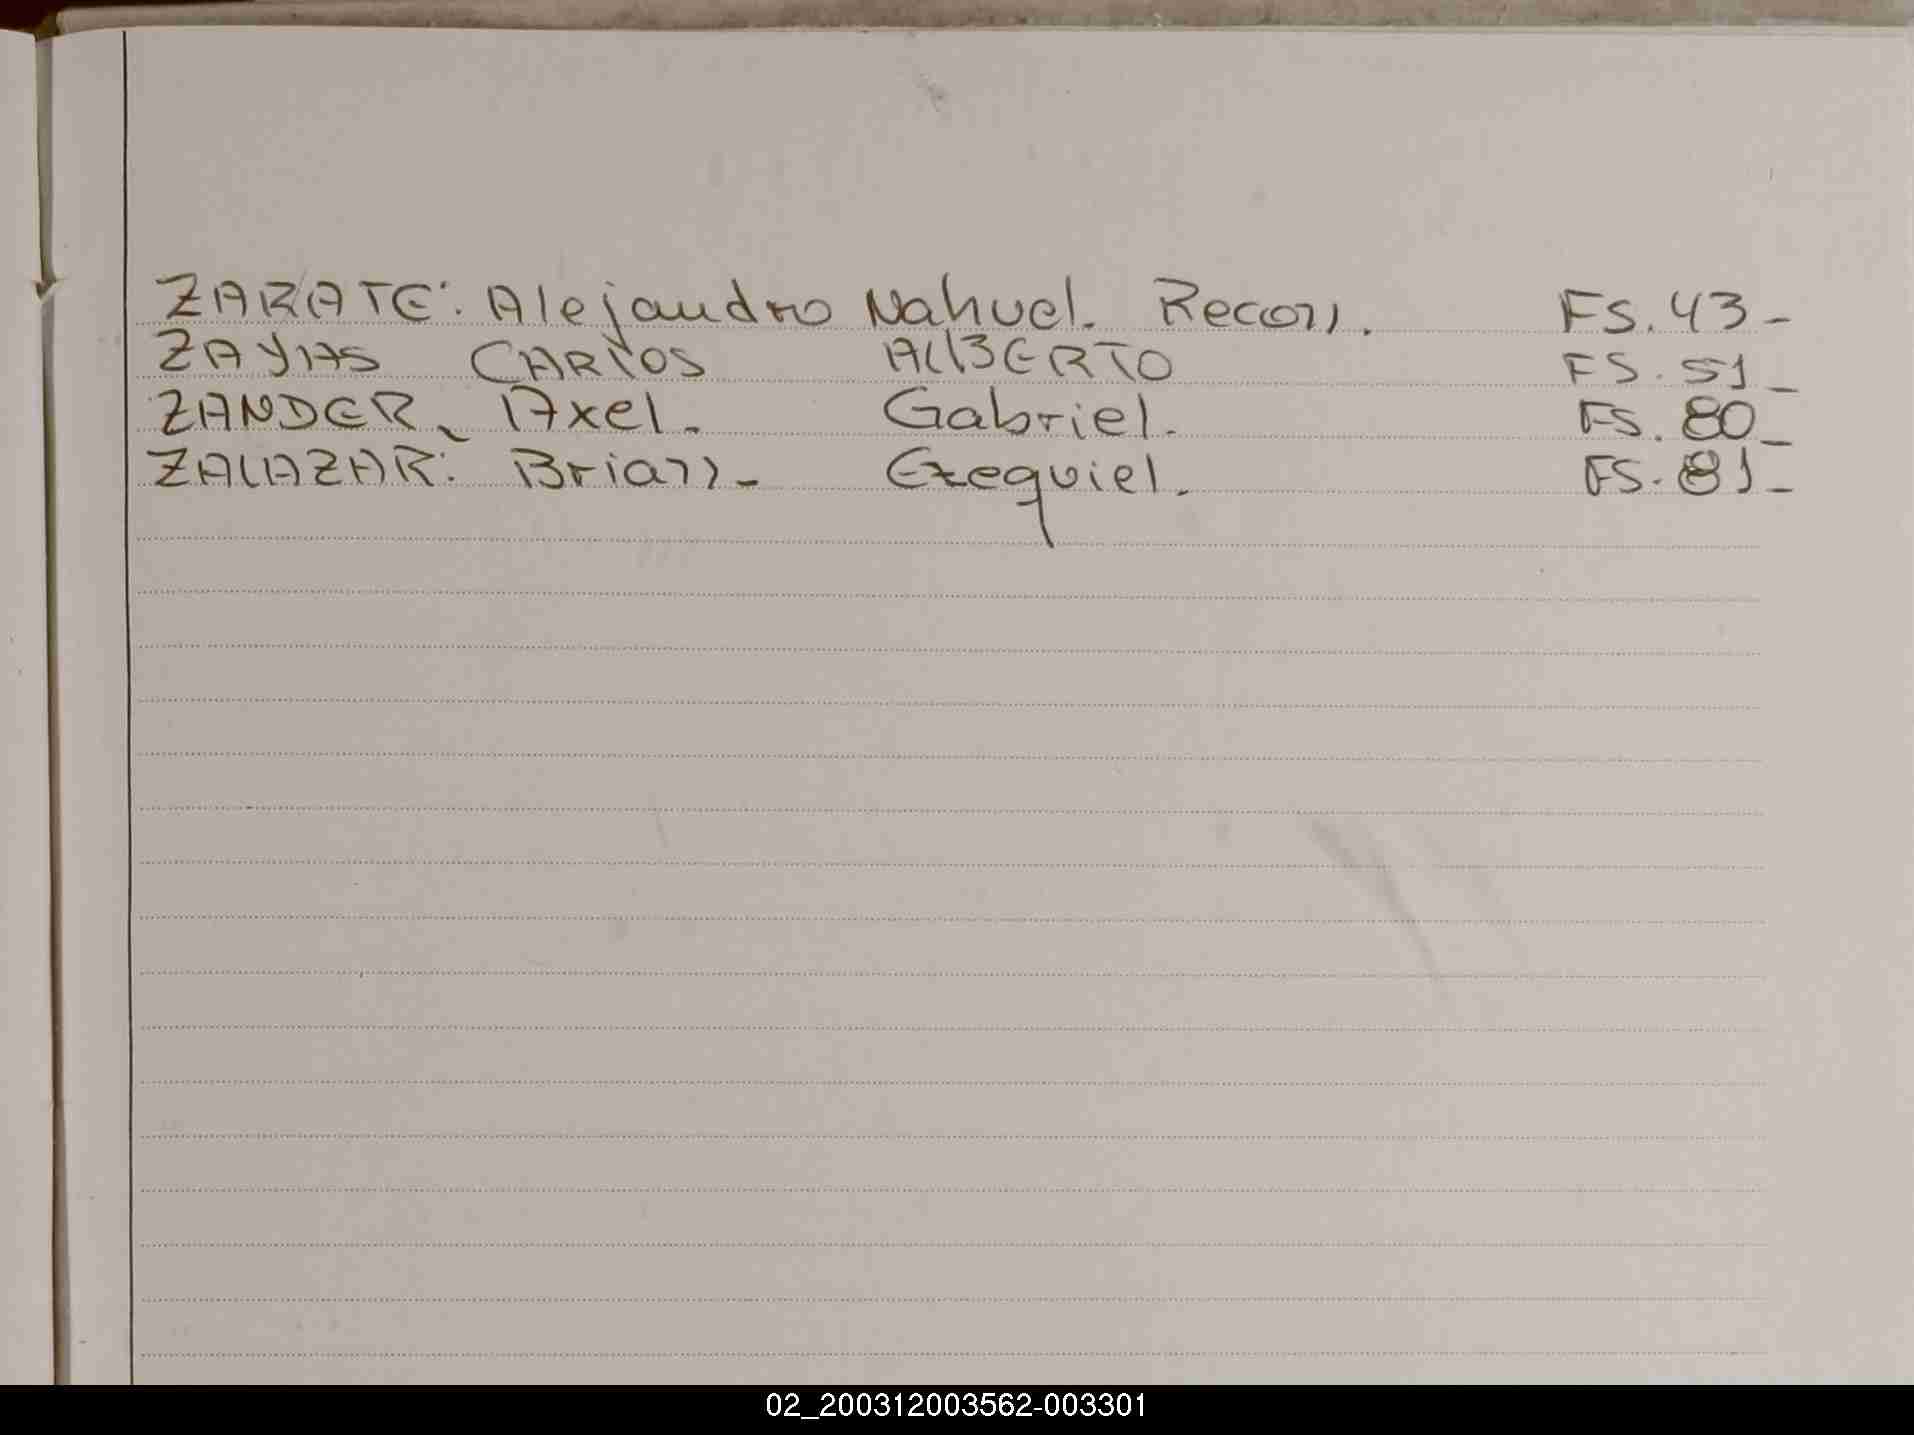 ZARATE: Alejandro Nahuel. Recon. Fs. 43-
ZAYAS CARLOS ALBERTO FS. 51-
ZANDER, Axel. Gabriel. FS. 80-
ZALAZAR: Brian- Ezequiel. FS. 81-
02_200312003562-003301